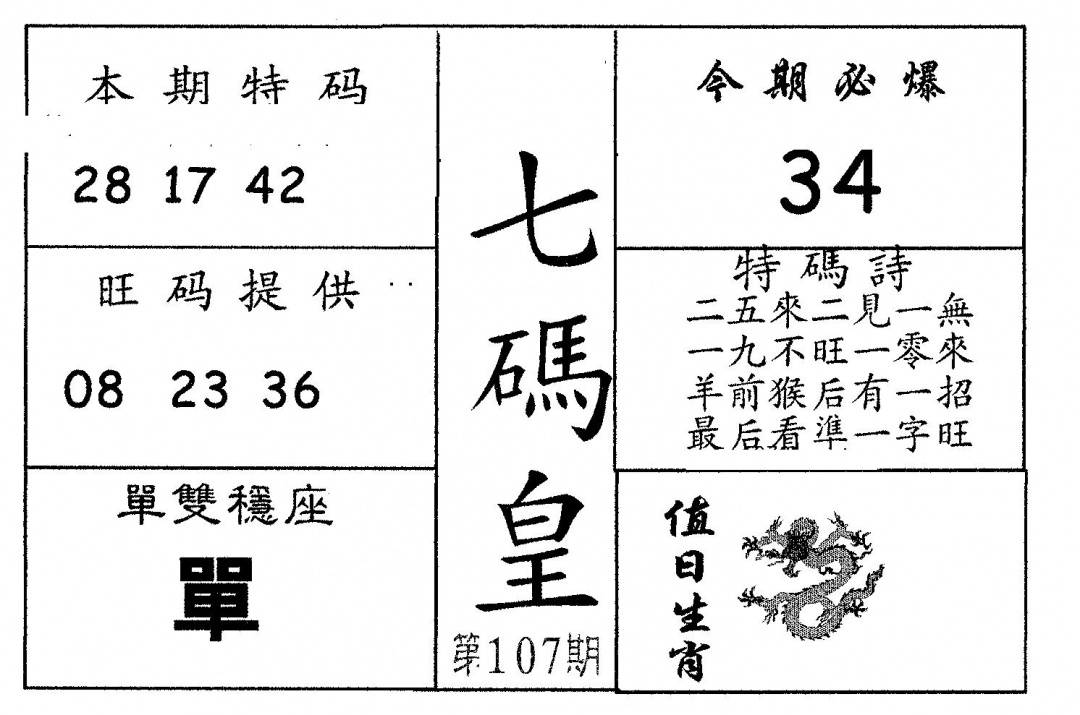 本期特码
28 17 42
旺码提供
08 23 36
單雙穩座
單
七碼皇
第107期
今期必爆
34
特碼詩
二五來二見一無
一九不旺一零來
羊前猴后有一招
最后看準一字旺
值日生肖